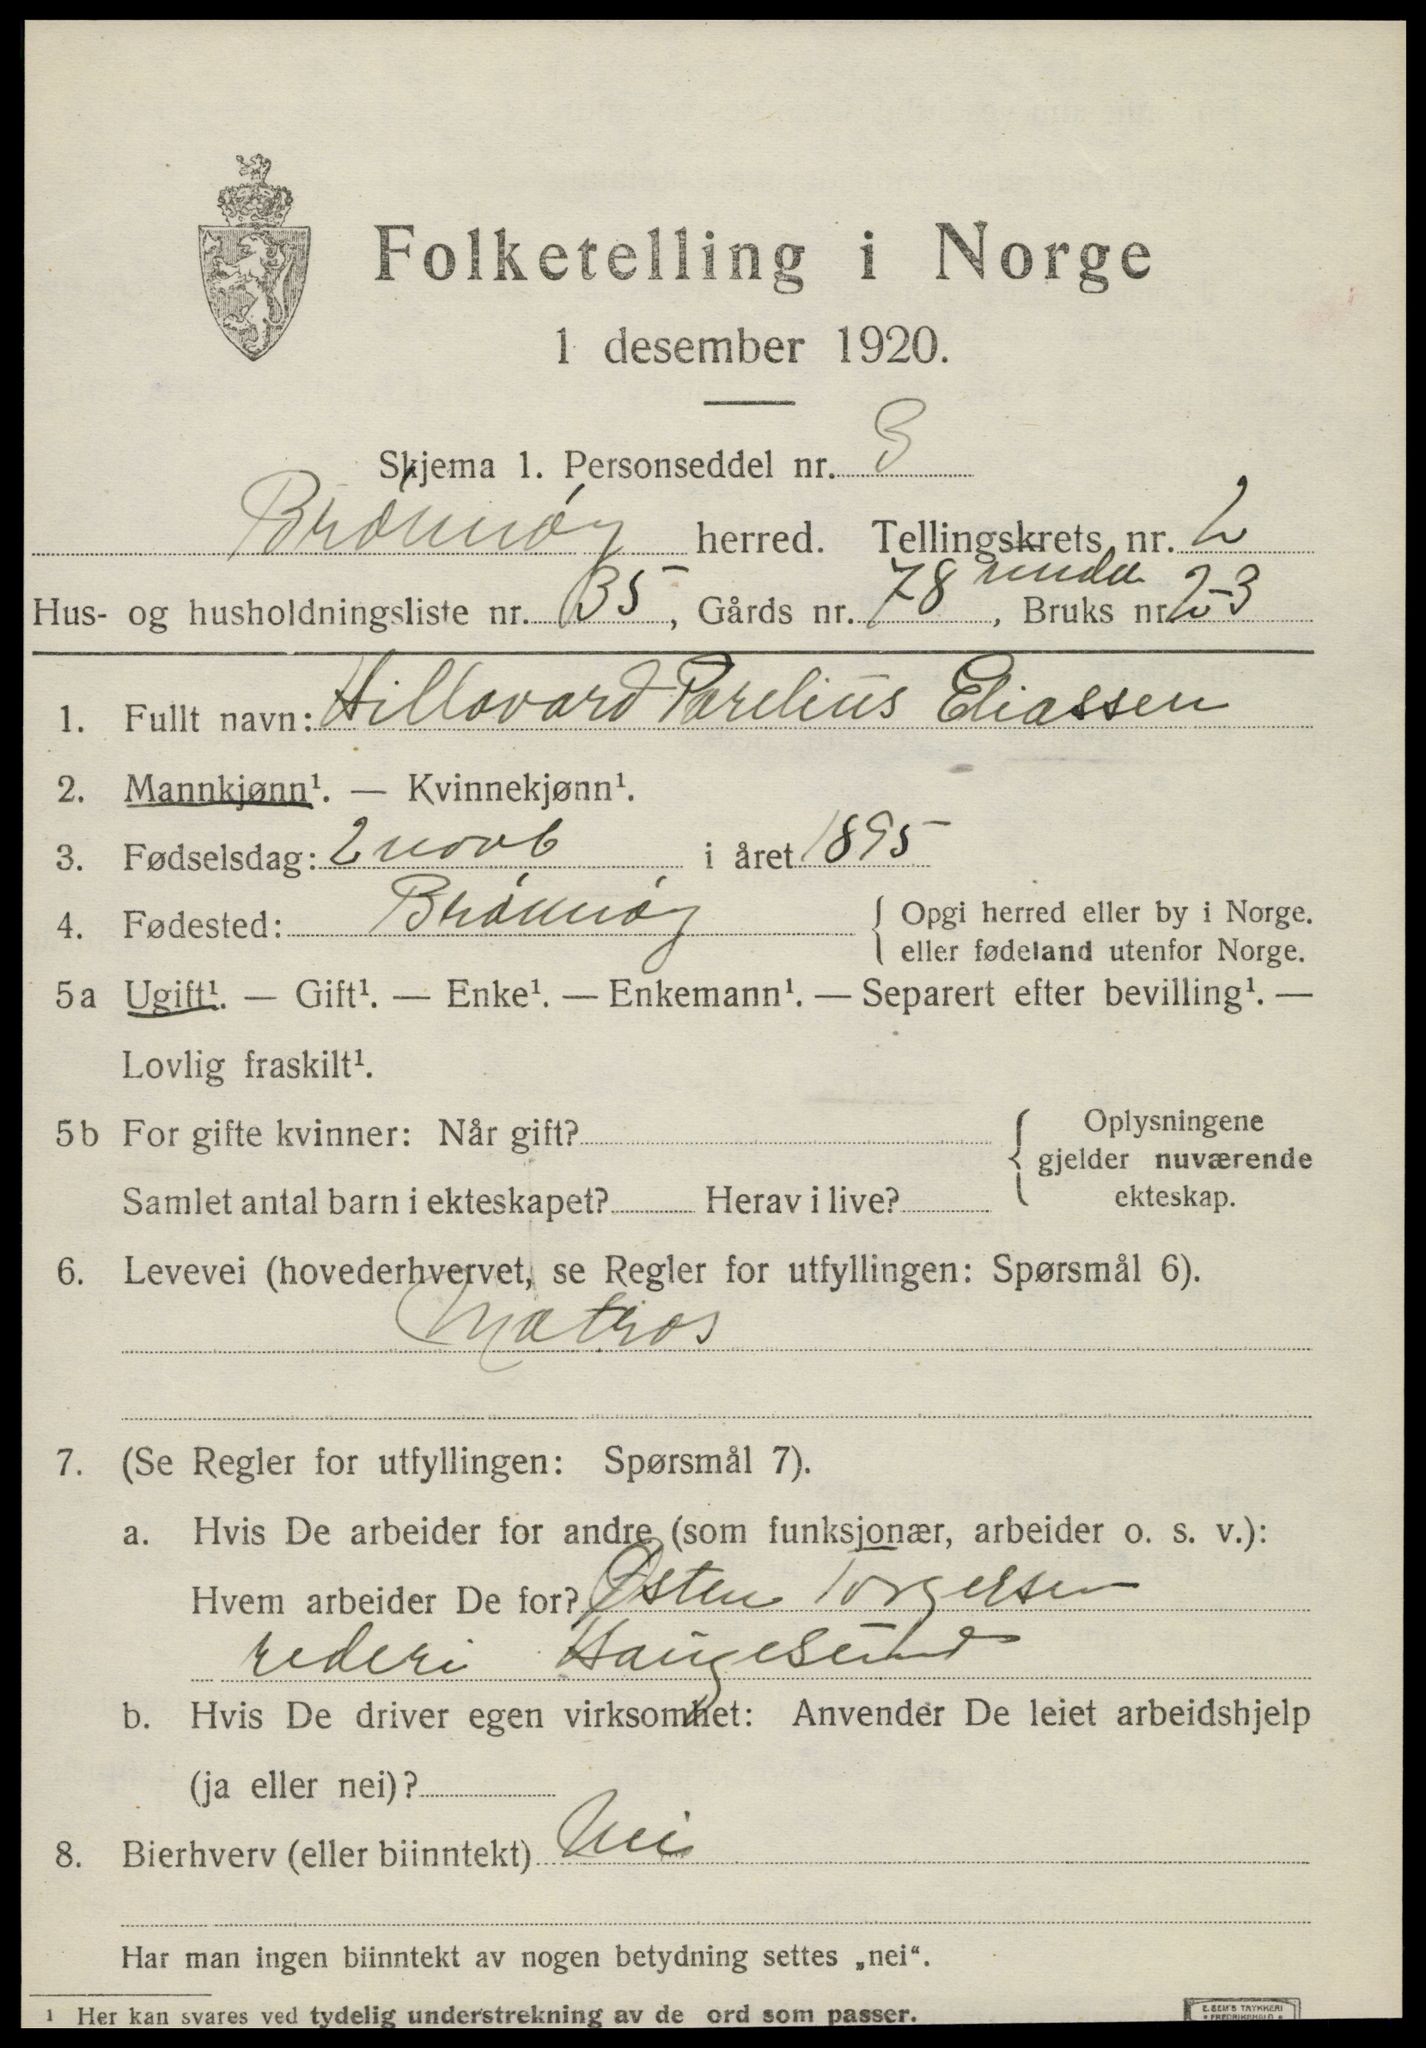 Folketelling i Norge
1 desember 1920.
Skjema 1. Personseddel nr. 3
Brønnøy herred. Tellingskrets nr. 2
Hus- og husholdningsliste nr. 35, Gårds nr. 78, Bruks nr. 2-3
1. Fullt navn: Hillavard Parelius Eliassen
2. Mannkjønn¹. — Kvinnekjønn¹.
3. Fødselsdag: 2 novb i året 1895
4. Fødested: Brønnøy { Opgi herred eller by i Norge.
eller fødeland utenfor Norge.
5a Ugift¹. — Gift¹. — Enke¹. — Enkemann¹. — Separert efter bevilling¹. —
Lovlig fraskilt¹.
5b For gifte kvinner: Når gift? { Oplysningene
gjelder nuværende
Samlet antal barn i ekteskapet? Herav i live? ekteskap.
6. Levevei (hovederhvervet, se Regler for utfyllingen: Spørsmål 6).
Matros
7. (Se Regler for utfyllingen: Spørsmål 7).
a. Hvis De arbeider for andre (som funksjonær, arbeider o. s. v.):
Hvem arbeider De for? Østen Torgersen
rederi Haugesund
b. Hvis De driver egen virksomhet: Anvender De leiet arbeidshjelp
(ja eller nei)?
8. Bierhverv (eller biinntekt) Nei
Har man ingen biinntekt av nogen betydning settes „nei“.
¹ Her kan svares ved tydelig understrekning av de ord som passer.
E. SEM'S TRYKKERI
* FREDRIKSHALD *